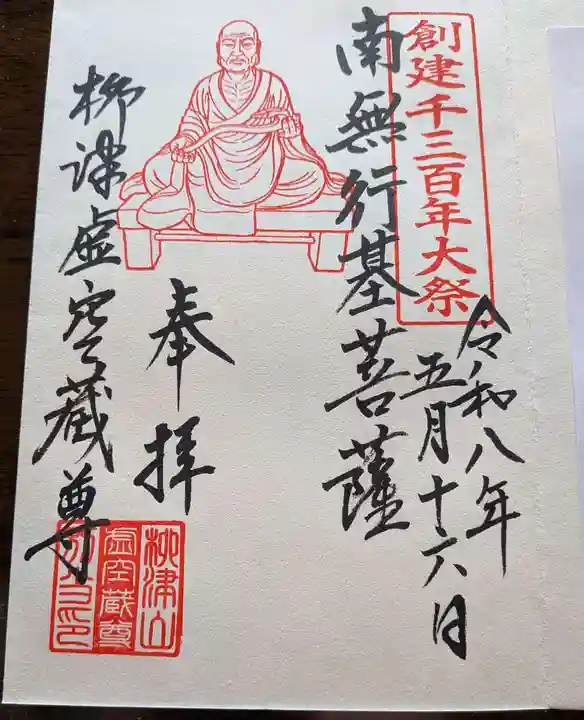 創建千三百年大祭
令和八年
五月十六日
南無行基菩薩
奉拝
柳津虚空蔵尊
柳津山
虚空蔵尊